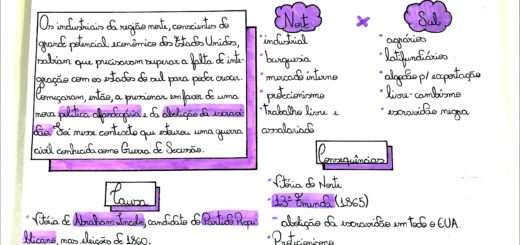 Os industriais da região norte, conscientes do
grande potencial econômico dos Estados Unidos,
sabiam que precisavam superar a falta de inte-
gração com os estados do sul para poder crescer.
Começaram, então, a pressionar em favor de uma
nova política alfandegária e da abolição da escravi-
dão. Foi nesse contexto que estourou uma guerra
civil conhecida como Guerra de Secessão.
Norte × Sul
* industrial
* burguesia
* mercado interno
* protecionismo
* Trabalho livre e
assalariado
* agrários
* latifundiários
* algodão p/ exportação
* livre-cambismo
* escravidão negra
Causa
* Vitória de Abraham Lincoln, candidato do Partido Repu-
blicano, nas eleições de 1860.
Consequências
* Vitória do Norte
* 13ª Emenda (1865)
- abolição da escravidão em todo o EUA.
* Protecionismo